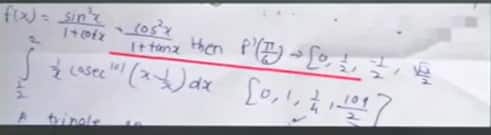 f(x) = sin²x/(1+cotx) + cos²x/(1+tanx) then f'(π/4) → [0, 1/2, -1/2, √3/2
∫_{1/2}^{2} 1/x cosec¹⁰¹(x-1/x) dx [0, 1, 1/4, 101/2]
A tringle